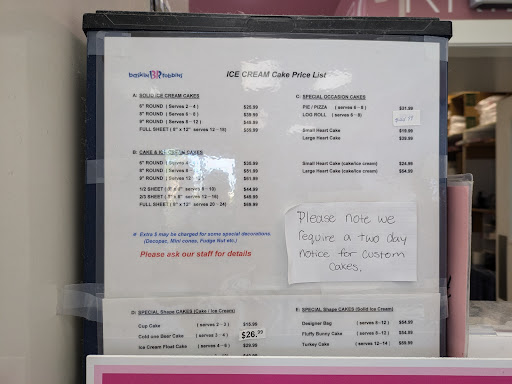 baskin BR robbins
ICE CREAM Cake Price List
A: SOLID ICE CREAM CAKES
6" ROUND (Serves 2 - 4)
8" ROUND (Serves 6 - 8)
9" ROUND (Serves 8 - 12)
FULL SHEET ( 8" x 12" serves 12 - 15)
$39.99
C: SPECIAL OCCASION CAKES
PIE / PIZZA ( serves 6 - 8 ) $31.99
LOG ROLL ( serves 6 - 8)
Small Heart Cake $19.99
Large Heart Cake $39.99
B: CAKE & ICE CREAM CAKES
6" ROUND
8" ROUND
9" ROUND
1/2 SHEET
2/3 SHEET
FULL SHEET ( 8" x 12" serves 20 - 24)
$44.99
Small Heart Cake (cake/ice cream) $24.99
Large Heart Cake (cake/ice cream) $54.99
# Extra $ may be charged for some special decorations
(Decopac, Mini cones, Fudge Nut etc.)
Please ask our staff for details
Please note we
require a two day
notice for custom
cakes.
D: SPECIAL Shape CAKES (Cake / Ice Cream)
Cup Cake ( serves 2 - 3 ) $15.99
Cold one Beer Cake ( serves 3 - 4 ) $26.99
Ice Cream Float Cake ( serves 4 - 6 ) $29.99
E: SPECIAL Shape CAKES (Solid Ice Cream)
Designer Bag ( serves 8 - 12 ) $54.99
Fluffy Bunny Cake ( serves 8 - 12 ) $54.99
Turkey Cake ( serves 12 - 14 ) $59.99